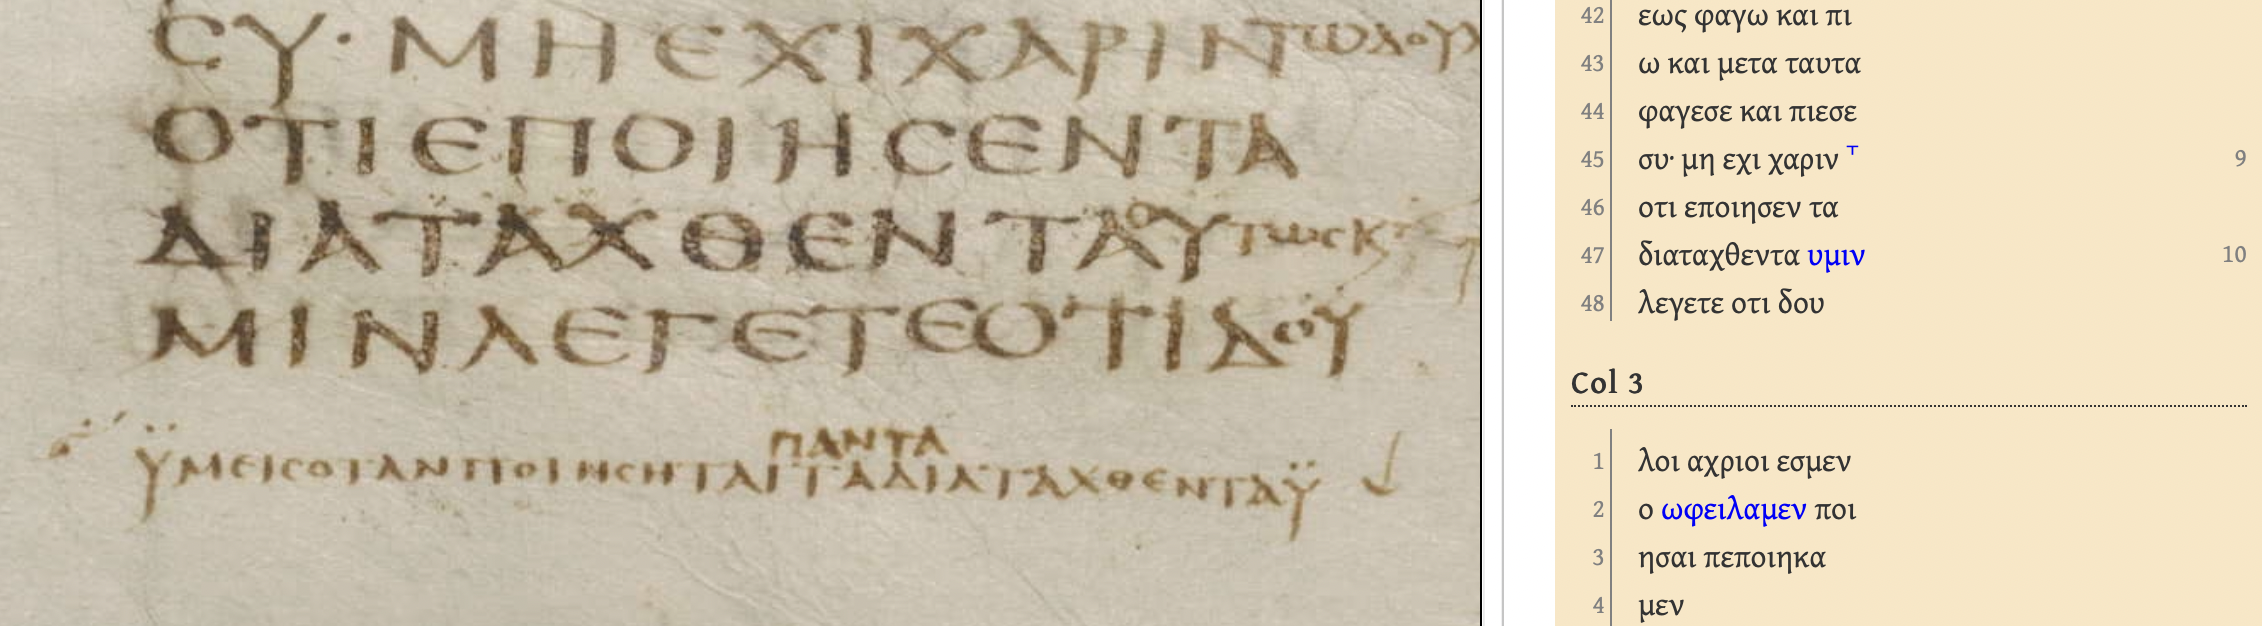 ϹΥ· ΜΗ ΕΧΙ ΧΑΡΙΝ ΤΩ ΔΟΥΛ
ΟΤΙ ΕΠΟΙΗϹΕΝ ΤΑ
ΔΙΑΤΑΧΘΕΝΤΑ ΟΥΤΩϹ Κ
ΜΙΝ ΛΕΓΕΤΕ ΟΤΙ ΔΟΥ
ΠΑΝΤΑ
ΫΜΕΙϹ ΟΤΑΝ ΠΟΙΗϹΗΤΑΙ ΤΑ ΔΙΑΤΑΧΘΕΝΤΑ Ϋ
42 εως φαγω και πι
43 ω και μετα ταυτα
44 φαγεσε και πιεσε
45 συ· μη εχι χαριν ⸆ 9
46 οτι εποιησεν τα
47 διαταχθεντα υμιν 10
48 λεγετε οτι δου
Col 3
1 λοι αχριοι εσμεν
2 ο ωφειλαμεν ποι
3 ησαι πεποιηκα
4 μεν